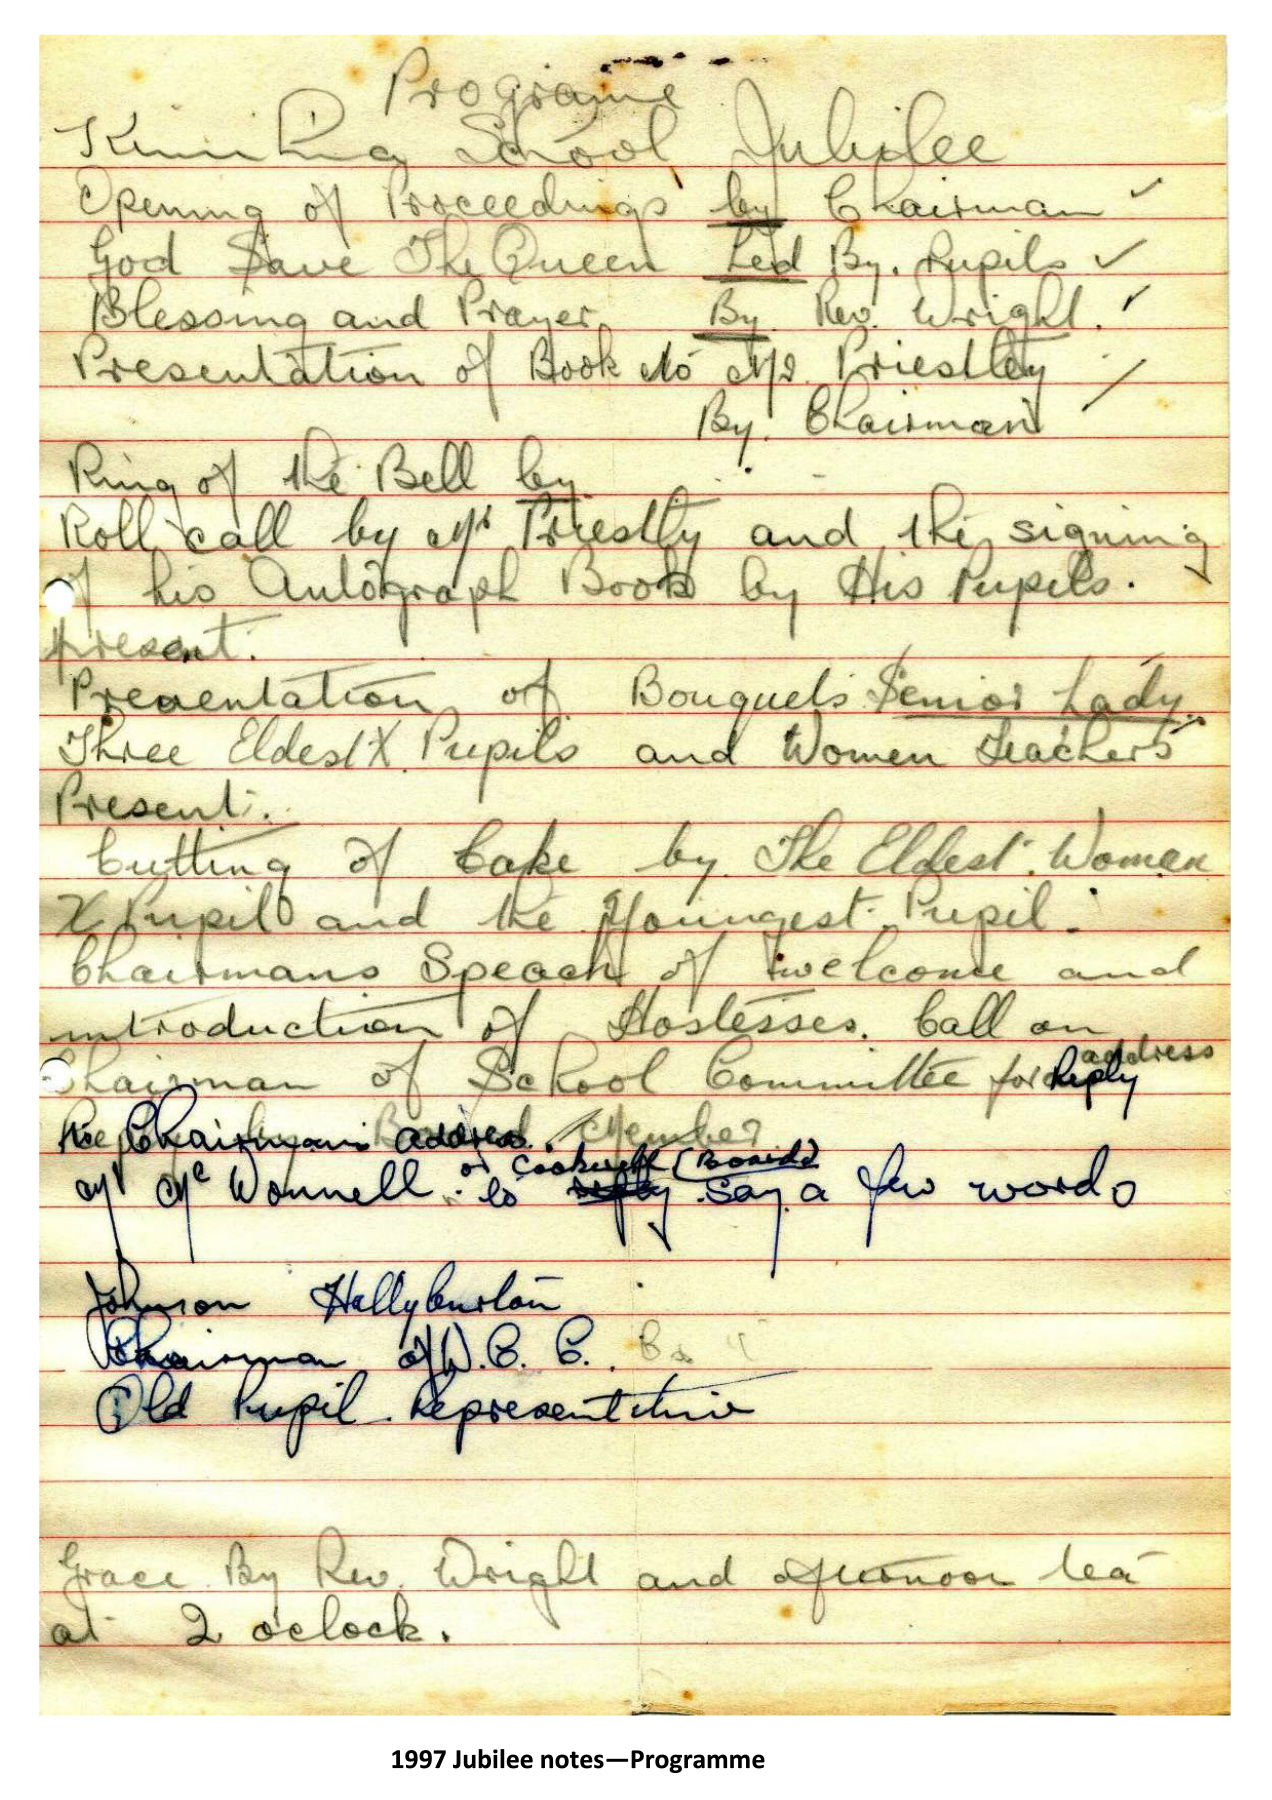 Programe
School Jubilee
Opening of Proceedings by Chairman ✓
God Save The Queen Led By. Pupils ✓
Blessing and Prayer By Rev. Wright. ✓
Presentation of Book to Mr. Priestley
By. Chairman ✓
Ring of the Bell by
Roll call by Mr Priestly and the signing
of his Autograph Book by His Pupils.
present.
Presentation of Bouquets Senior Lady.
Three Eldest X Pupils and Women Teachers
Present.
Cutting of Cake by The Eldest Woman
X Pupil and the Youngest Pupil.
Chairmans Speach of welcome and
introduction of Hostesses. Call on
Chairman of School Committee for address
Reply
the Chairmans address. Member
or (Board)
Mr Mc Wonnell to say a few words
Johnson Hallyburton
Chairman of W.C.C.
Old Pupil Representitive
Grace By Rev. Wright and afternoon tea
at 2 oclock.
1997 Jubilee notes—Programme